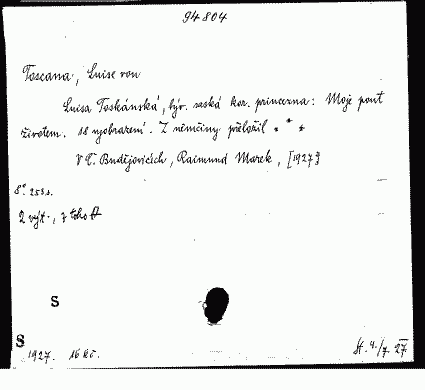 94804
Toscana, Luise von
Luisa Toskánská, býv. saská kor. princezna: Moje pouť
životem. 18 vyobrazení. Z němčiny přeložil * * *
V Č. Budějovicích, Raimund Marek, [1927]
8°. 253 s.
2 výt., z toho
S
S
1927. 16 Kč.